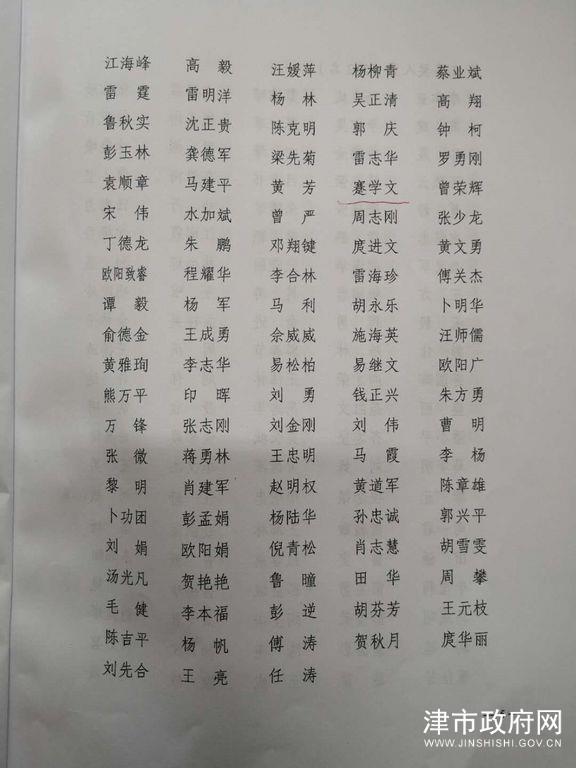 江海峰 高毅 汪媛萍 杨柳青 蔡业斌
雷霆 雷明洋 杨林 吴正清 高翔
鲁秋实 沈正贵 陈克明 郭庆 钟柯
彭玉林 龚德军 梁先菊 雷志华 罗勇刚
袁顺章 马建平 黄芳 蹇学文 曾荣辉
宋伟 水加斌 曾严 周志刚 张少龙
丁德龙 朱鹏 邓翔键 庹进文 黄文勇
欧阳致睿 程耀华 李合林 雷海珍 傅关杰
谭毅 杨军 马利 胡永乐 卜明华
俞德金 王成勇 佘威威 施海英 汪师儒
黄雅珣 李志华 易松柏 易继文 欧阳广
熊万平 印晖 刘勇 钱正兴 朱方勇
万锋 张志刚 刘金刚 刘伟 曹明
张微 蒋勇林 王忠明 马霞 李杨
黎明 肖建军 赵明权 黄道军 陈章雄
卜功团 彭孟娟 杨陆华 孙忠诚 郭兴平
刘娟 欧阳娟 倪青松 肖志慧 胡雪雯
汤光凡 贺艳艳 鲁曈 田华 周攀
毛健 李本福 彭逆 胡芬芳 王元枝
陈吉平 杨帆 傅涛 贺秋月 庹华丽
刘先合 王亮 任涛
津市政府网
WWW.JINSHISHI.GOV.CN